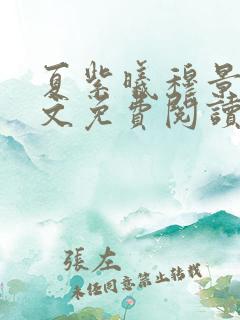 夏紫曦穆景
文免費閱讀
張左
未经同意禁止转载